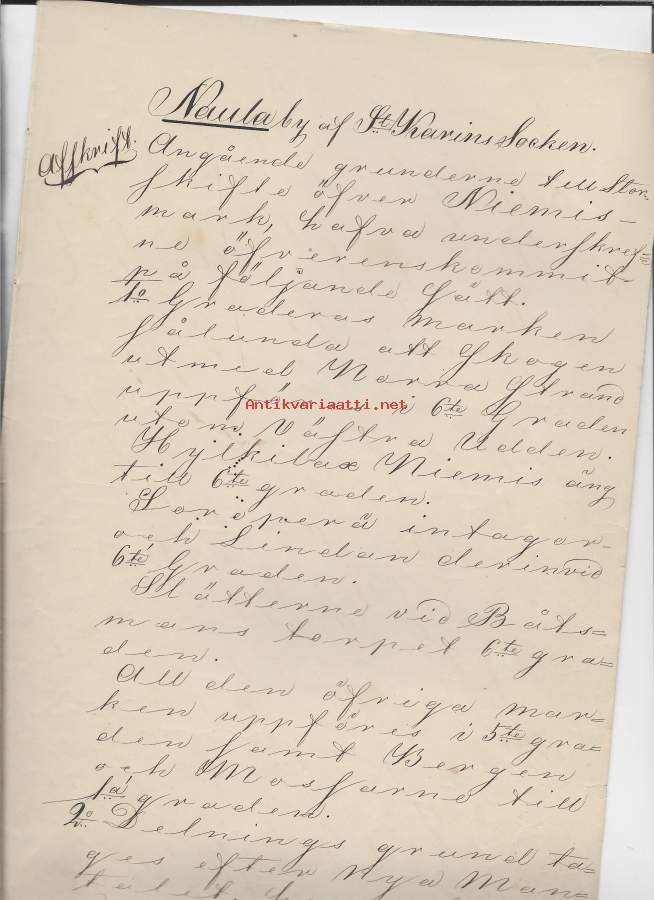 Naula by af S:t Karins Socken.
Afskrift.
Angående grunderne till Stor-
skifte öfver Niemis-
mark, hafva underskref-
ne öfverenskommit
på följande sätt.
1:o Graderas marken
sålunda att Skogen
utmed Norra Strand
uppföres i 6:te Graden
utom Västra Udden.
Hylkibax Niemis äng
till 6:te graden.
Soröperä intagor
och Lindan derinvid
6:te Graden.
Slätterne vid Båts=
mans torpet 6:te gra=
den.
All den öfriga mar=
ken uppföres i 5:te gra=
den samt Bergen
och Mossarne till
1:a graden.
2:o Delnings grund ta=
ges efter nya Man=
talet.
Antikvariaatti.net